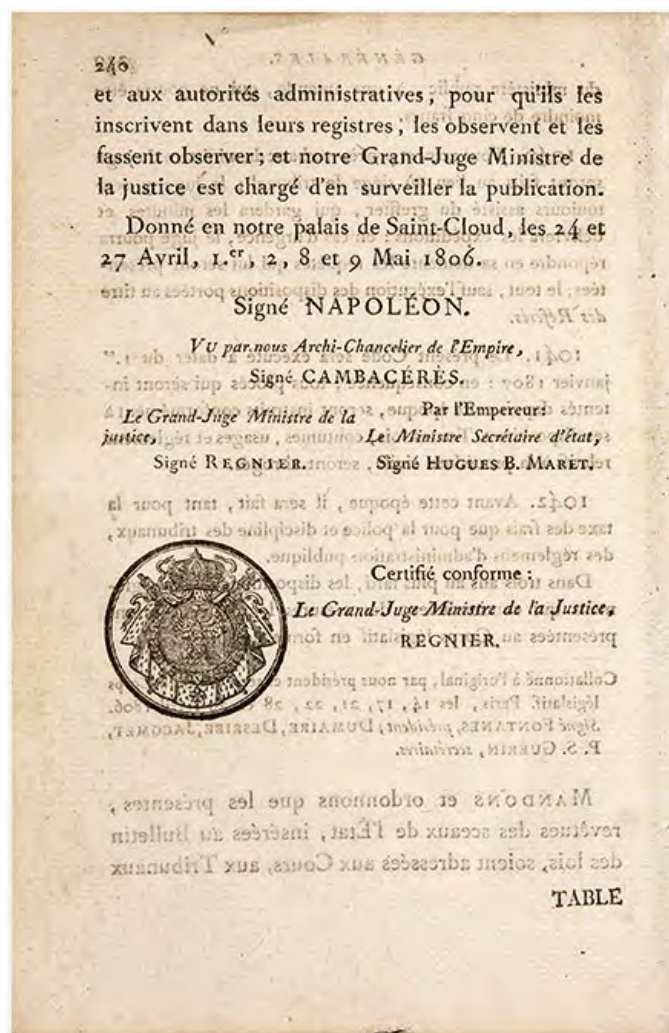 246
et aux autorités administratives, pour qu'ils les
inscrivent dans leurs registres, les observent et les
fassent observer; et notre Grand-Juge Ministre de
la justice est chargé d'en surveiller la publication.
Donné en notre palais de Saint-Cloud, les 24 et
27 Avril, 1.er, 2, 8 et 9 Mai 1806.
Signé NAPOLÉON.
VU par nous Archi-Chancelier de l'Empire,
Signé CAMBACÉRÈS.
Le Grand-Juge Ministre de la
justice,
Signé REGNIER.
Par l'Empereur:
Le Ministre Secrétaire d'état,
Signé HUGUES B. MARET.
Certifié conforme:
Le Grand-Juge Ministre de la Justice,
REGNIER.
TABLE